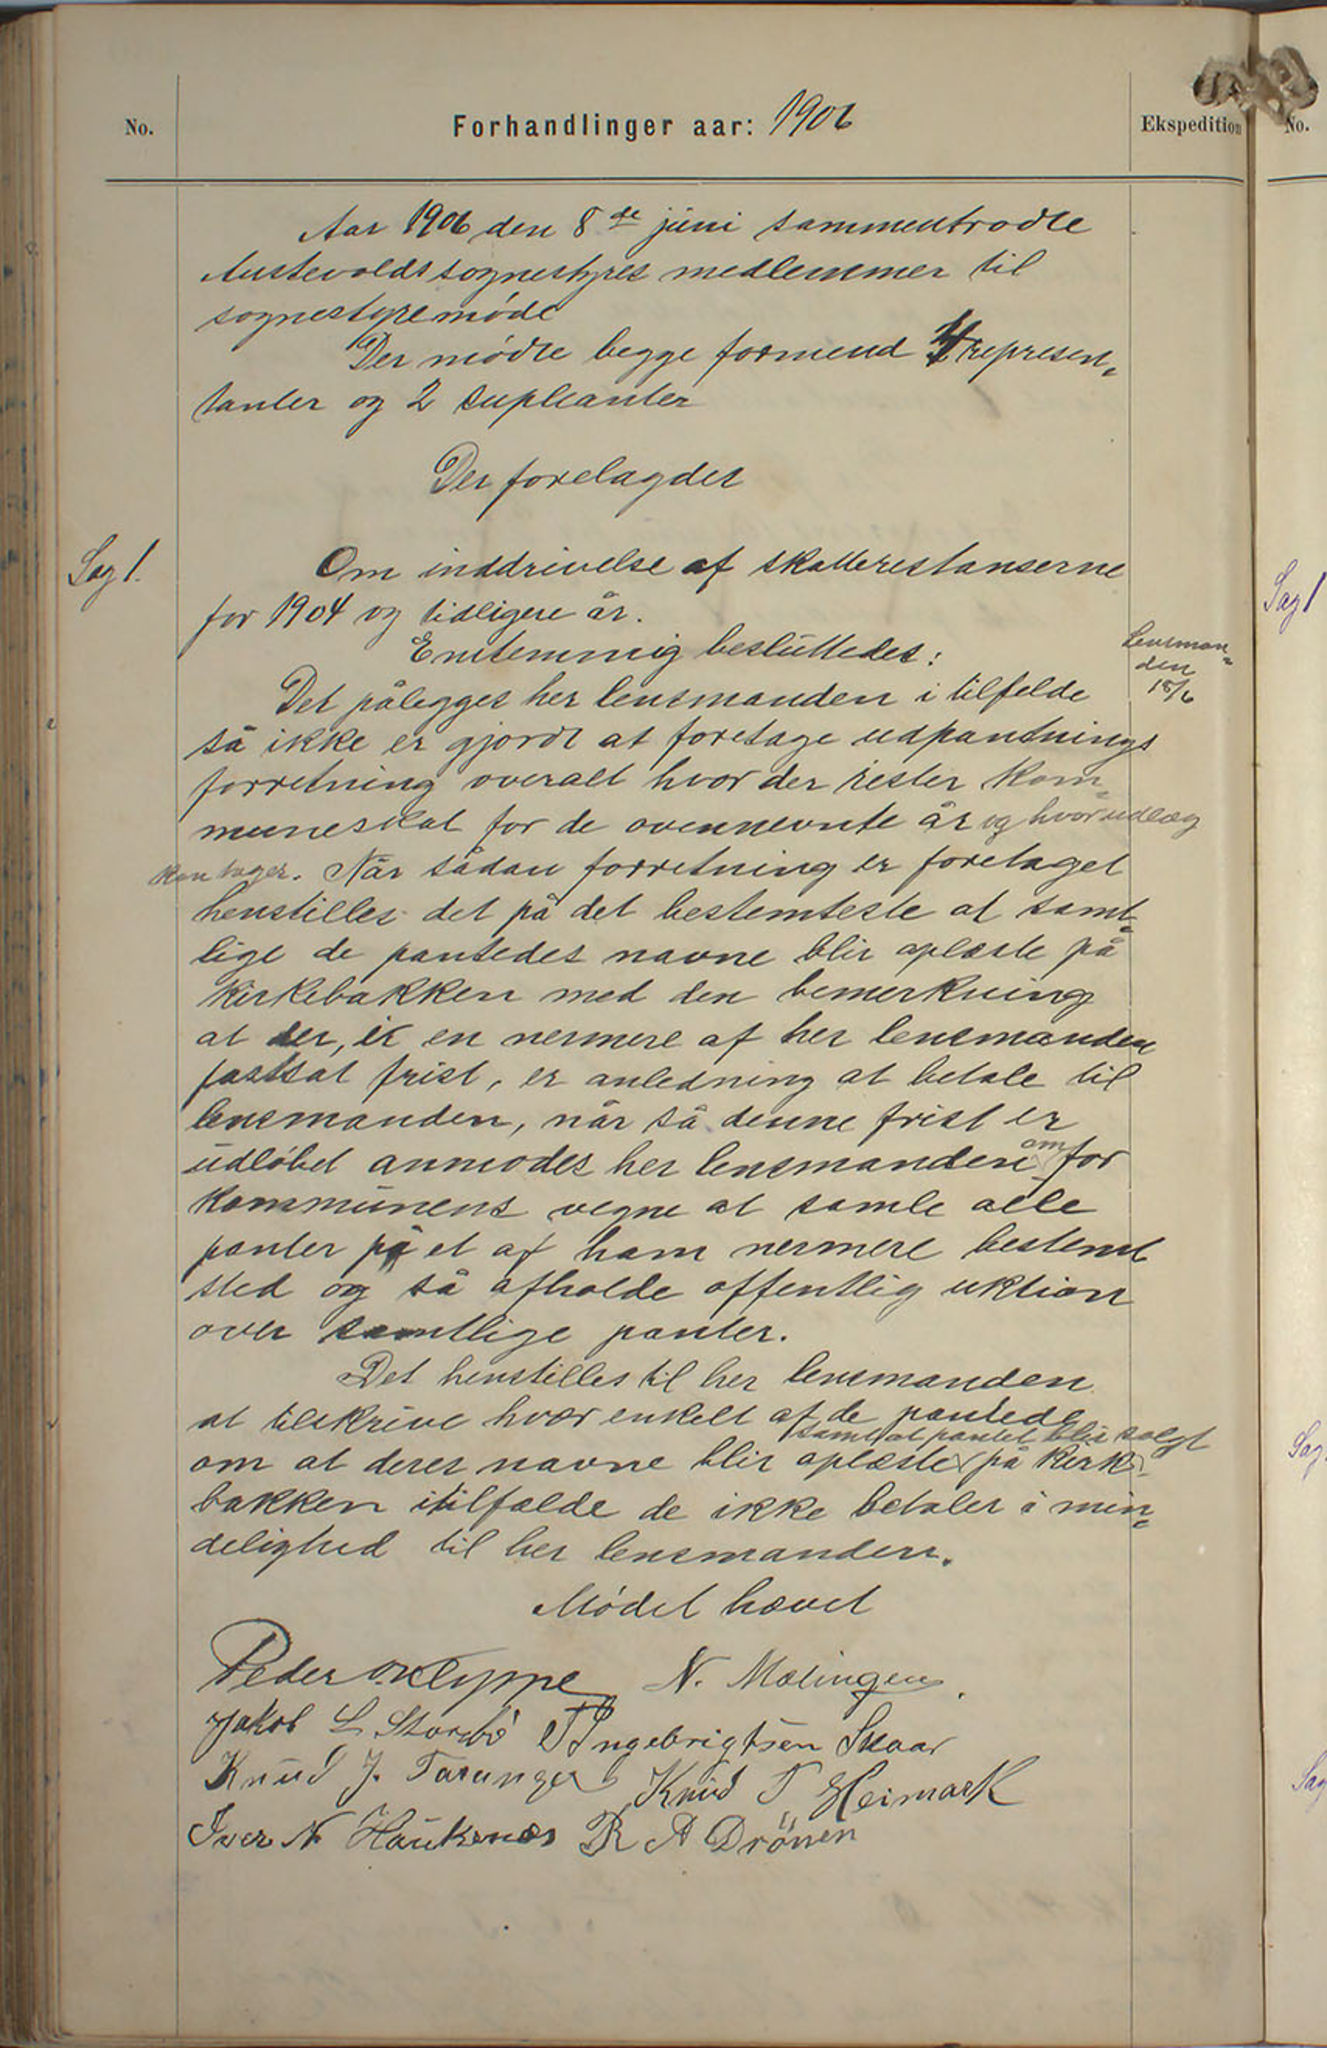 No.
Forhandlinger aar: 1906
Ekspedition
No.
Aar 1906 den 8de juni sammentrodte
Austevolds sognestyres medlemmer til
sognestyremöde
Der mödte begge formend 4 represen-
tanter og 2 supleanter
Der forelagdes
Sag 1.
Om inddrivelse af skatterestanserne
for 1904 og tidligere år.
Enstemmig besluttedes:
Lensman-
den
15/6
Det pålegges her lensmanden i tilfelde
så ikke er gjordt at foretage udpantnings
forretning overalt hvor der rester kom-
muneskat for de ovennevnte år og hvor udlæg
kan tages. Når sådan forretning er foretaget
henstilles det på det bestemteste at samt-
lige de pantedes navne blir oplæste på
Kirkebakken med den bemerkning
at der, i en nermere af her lensmanden
fastsat frist, er anledning at betale til
lensmanden, når så denne frist er
udlöbet anmodes her lensmanden om for
kommunens vegne at samle alle
panter på et af ham nermere bestemt
sted og så afholde offentlig uktion
over samtlige panter.
Det henstilles til her lensmanden
at tilskrive hvær enkelt af de pantede
om at deres navne blir oplæste på Kirke-
samt at pantet blir solgt
bakken itilfælde de ikke betaler i min-
delighed til her lensmanden.
Mödet hævet
Peder Klyppe N. Mælingen.
Jakob L Storebö T Ingebrigtsen Skaar
Knud J. Taranger Knud T. Heimark
Iver N Haukenæs R A Drönen
Sag 1
Sag
Sag